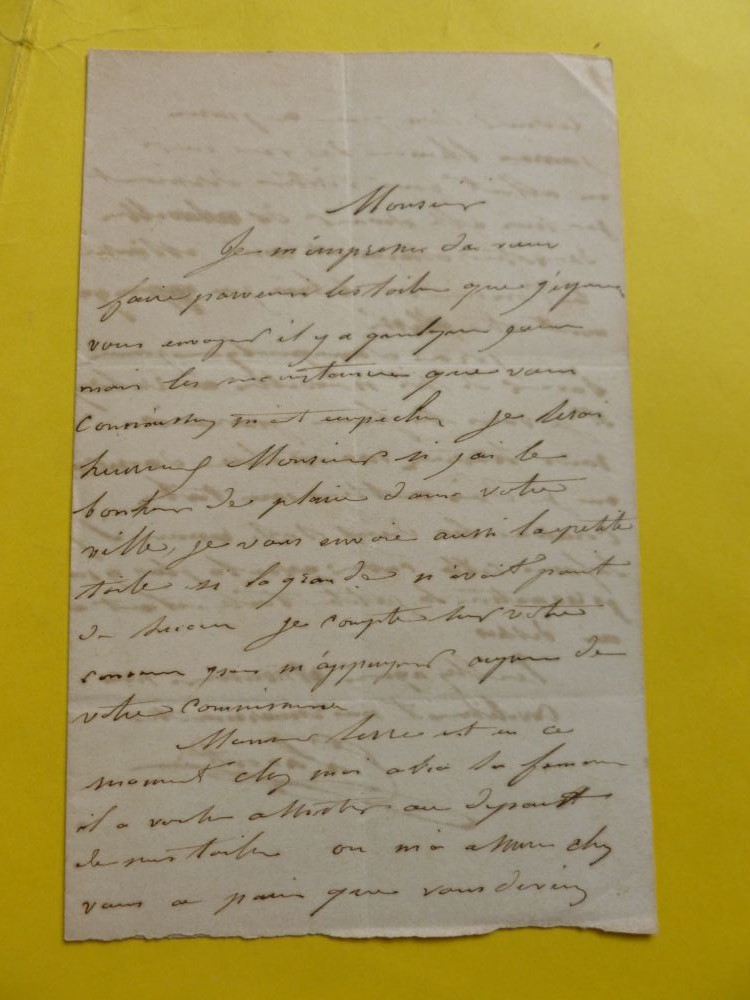 Monsieur
Je m'empresse de vous
faire parvenir les toiles que j'
vous envoyer il y a quelques jours
mais les circonstances que vous
connaissez m'ont empecher je serai
heureux Monsieur si j'ai le
bonheur de plaire dans votre
ville, je vous envoie aussi la petite
toile si la grande n'avait point
de succes je compte sur votre
concour pour m'appuyer aupres de
votre commission
Monsieur est en ce
moment chez moi avec sa femme
il a voulu assister au depart
de mes toiles on m'a assure chez
vous a paris que vous deviez